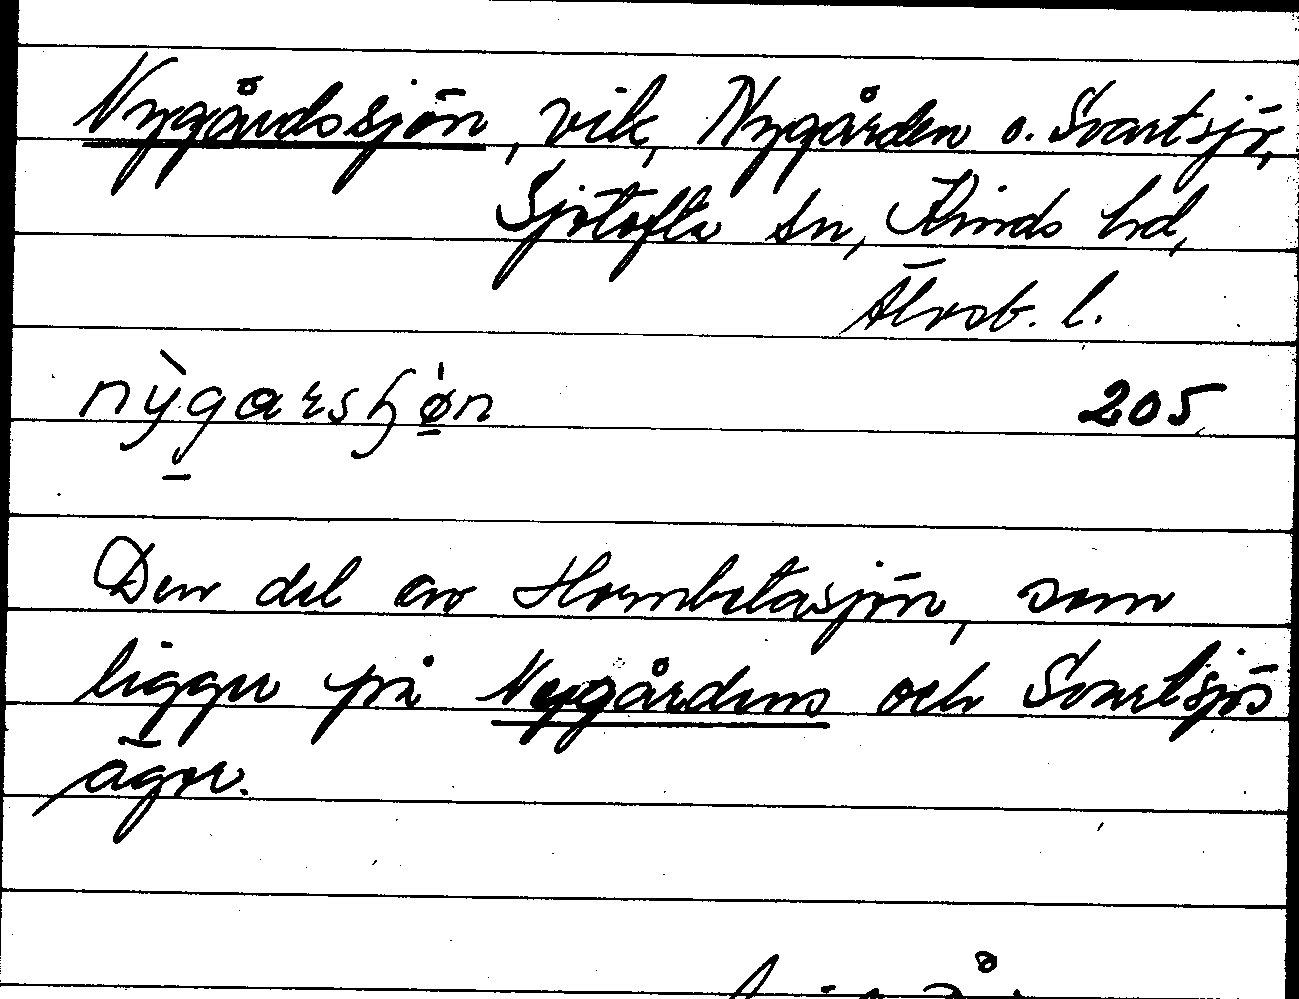 Nygårdssjön, vik, Nygården o. Svartsjö,
Sjötofta sn, Kinds hd,
Älvsb. l.
nỳgarsʃø̍n 205
Den del av Hornbetasjön, som
ligger på Nygårdens och Svartsjös
ägor.